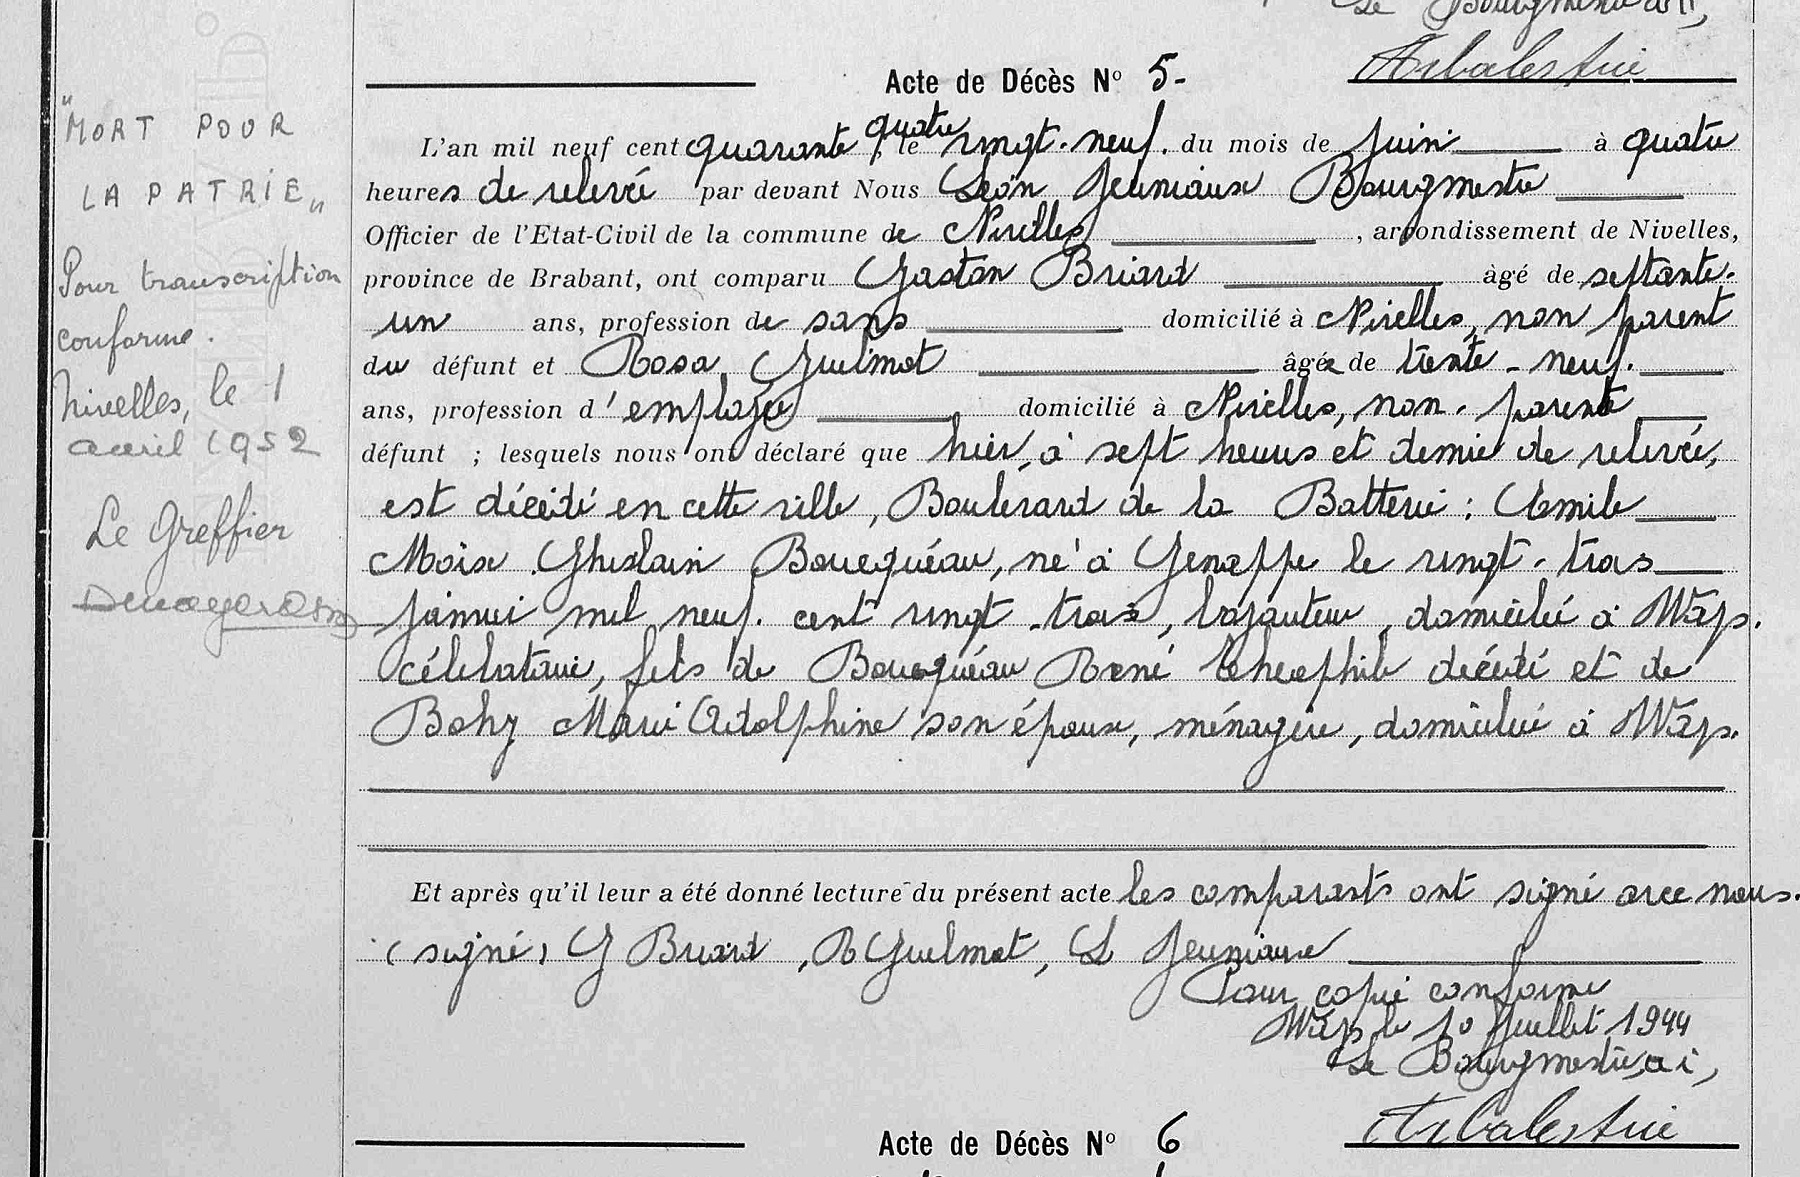 Le Bourgmestre a.i,
Arbalestrie
Acte de Décès N° 5-
"MORT POUR
LA PATRIE"
Pour transcription
conforme.
Nivelles, le 1
avril 1952
Le Greffier
L'an mil neuf cent quarante quatre, le vingt-neuf du mois de Juin à quatre
heures de relevée par devant Nous Léon Jeuniaux Bourgmestre
Officier de l'Etat-Civil de la commune de Nivelles, arrondissement de Nivelles,
province de Brabant, ont comparu Gaston Briard âgé de septante-
un ans, profession de sans domicilié à Nivelles, non parent
du défunt et Rosa Guilmot âgée de trente-neuf
ans, profession d'employée domicilié à Nivelles, non-parente
défunt ; lesquels nous ont déclaré que hier, à sept heures et demie de relevée,
est décédé en cette ville, Boulevard de la Batterie : Emile
Moïse Ghislain Boucquéau, né à Genappe le vingt-trois
janvier mil neuf cent vingt-trois, ajusteur, domicilié à Ways.
célibataire, fils de Boucquéau René Théophile décédé et de
Bohy Marie Adolphine son épouse, ménagère, domiciliée à Ways.
Et après qu'il leur a été donné lecture du présent acte les comparants ont signé avec nous.
(signé) G Briard, R Guilmot, L Jeuniaux
Pour copie conforme
Ways le 10 Juillet 1944
Le Bourgmestre a i,
Arbalestrie
Acte de Décès N° 6